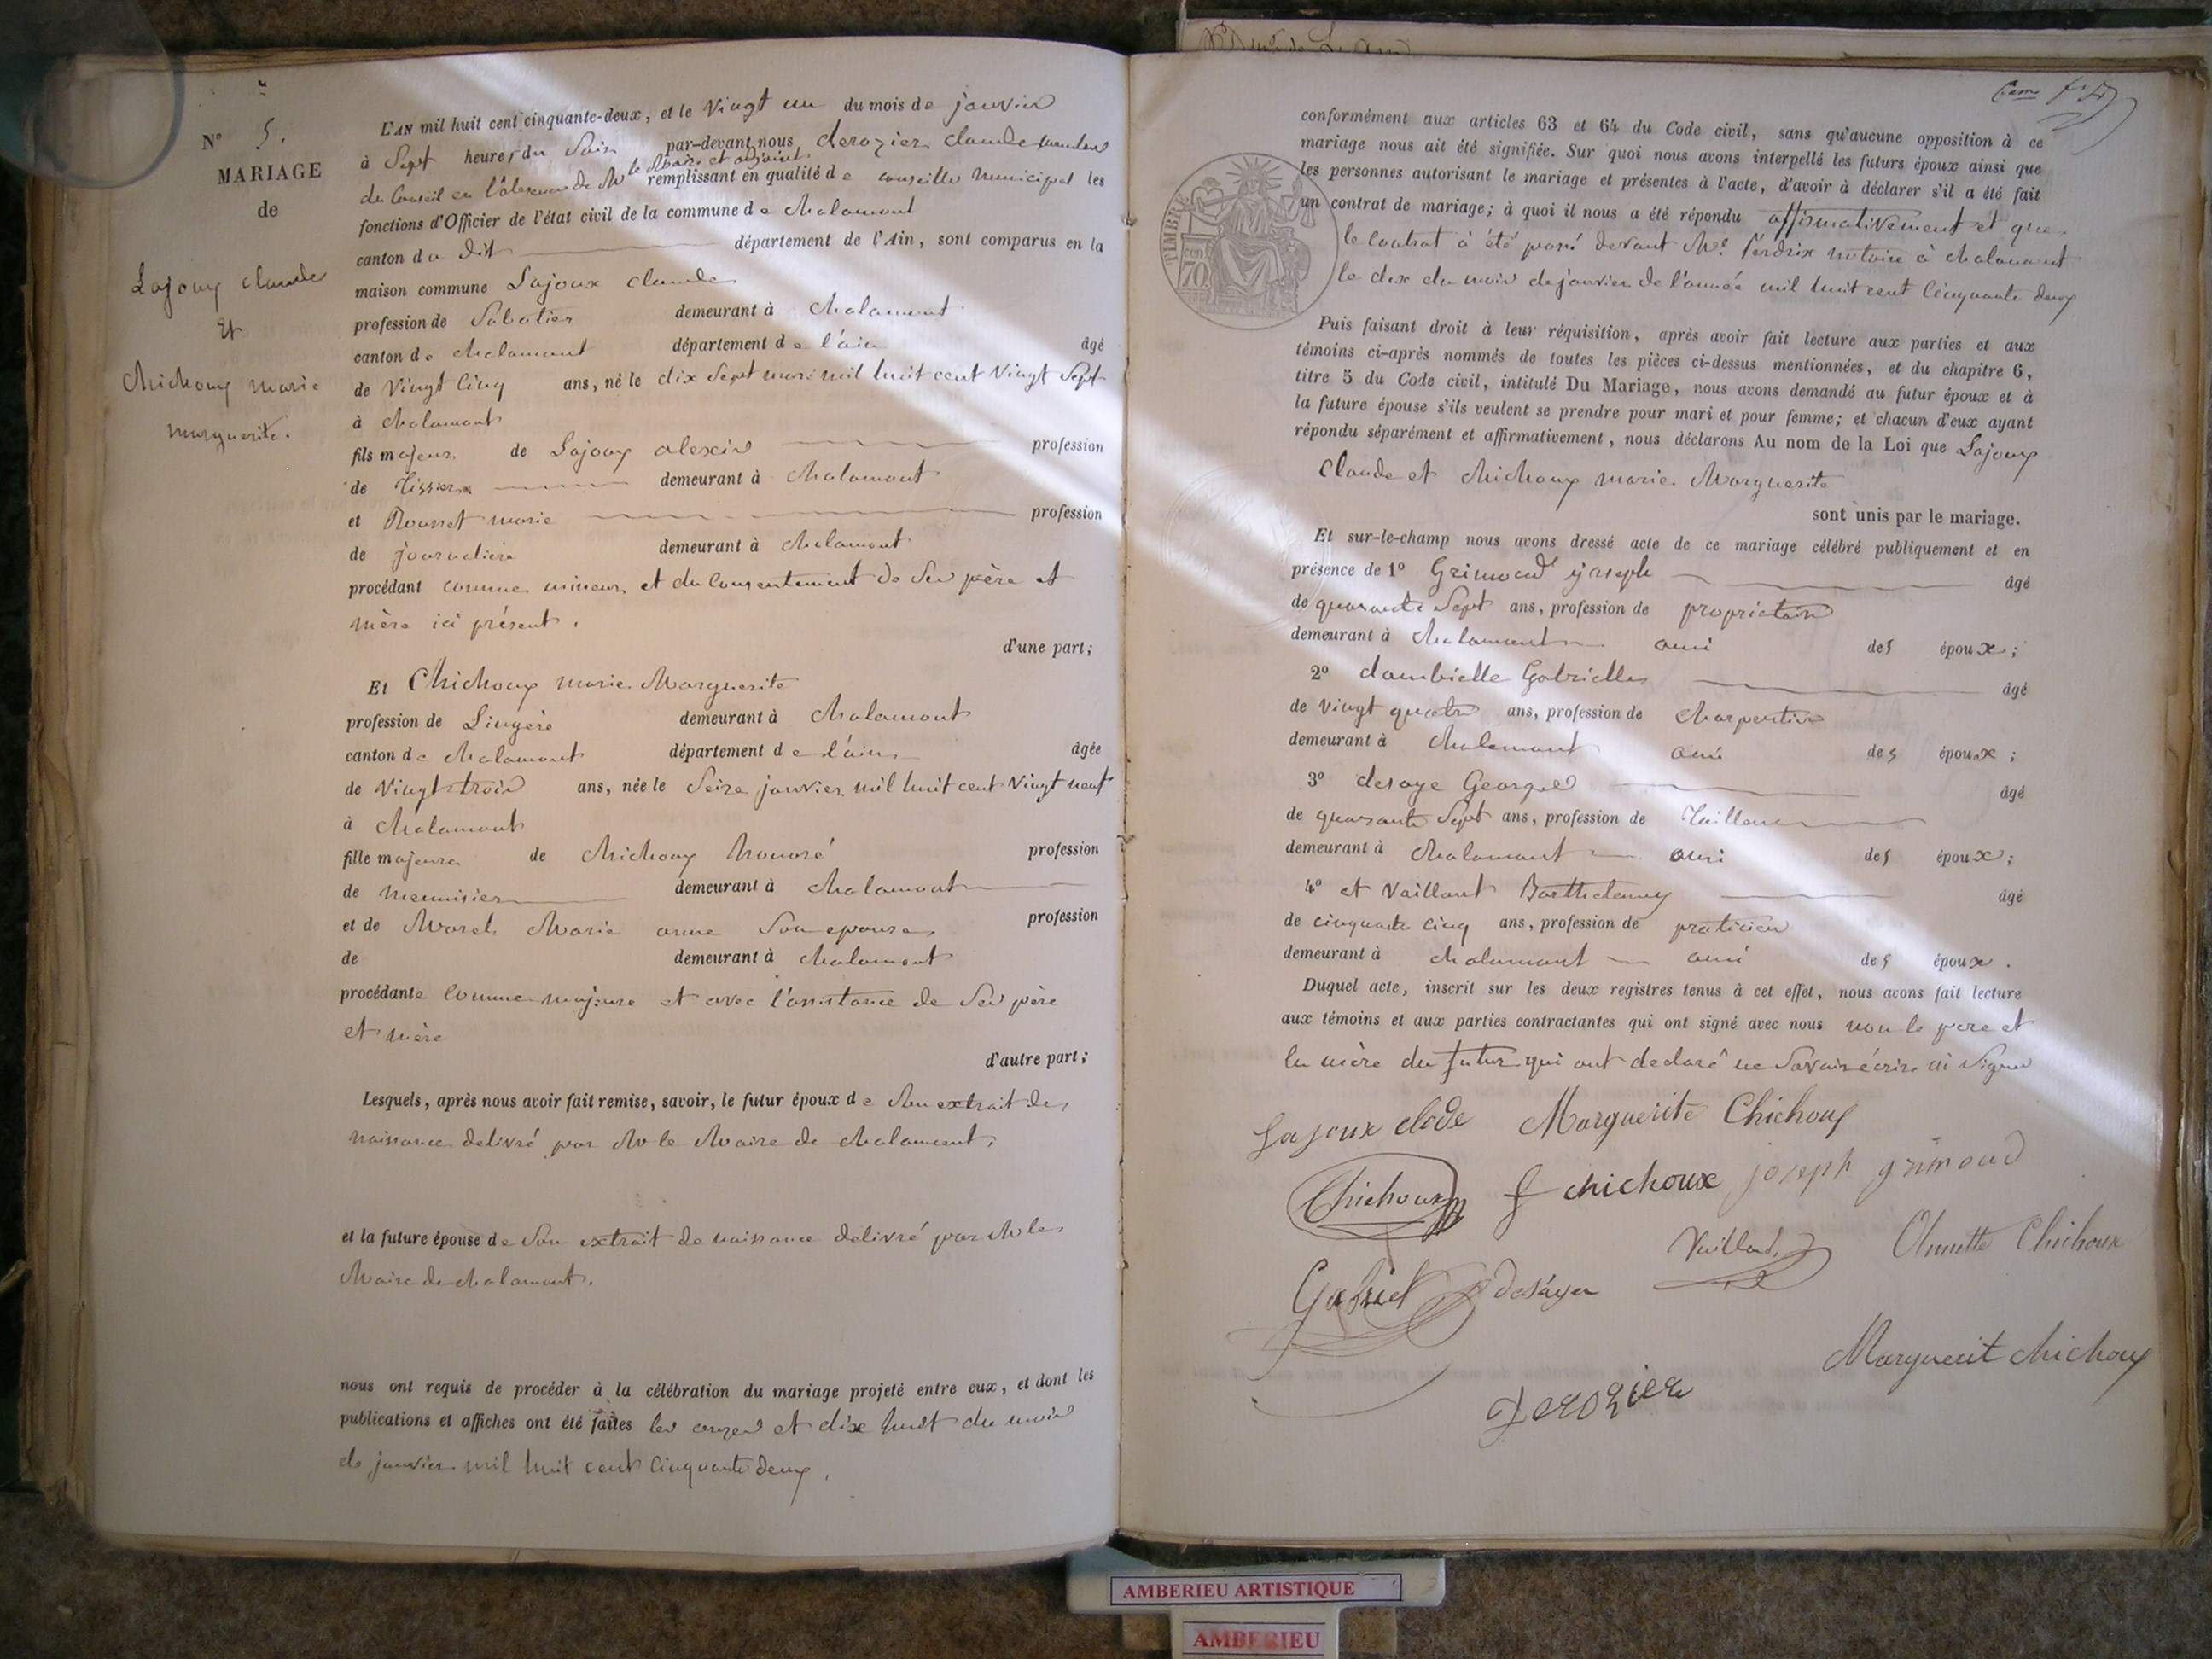 N° 5.
MARIAGE
de
Lajoux claude
Et
Chichoux marie
marguerite.
L'AN mil huit cent cinquante-deux, et le Vingt un du mois de janvier
à Sept heures du Soir par-devant nous derozier claude membre
du Conseil en l'absence de Mr le Maire et adjoint remplissant en qualité de conseiller municipal les
fonctions d'Officier de l'état civil de la commune de chalamont
canton du dit département de l'Ain, sont comparus en la
maison commune Lajoux claude
profession de Sabotier demeurant à chalamont
canton de chalamont département de l'ain âgé
de Vingt Cinq ans, né le dix Sept mars mil huit cent Vingt Sept
à chalamont
fils majeur de Lajoux alexis profession
de tissier demeurant à chalamont
et Rousset marie profession
de journalière demeurant à chalamont
procédant comme mineur et du Consentement de Ses père et
mère ici présent.
d'une part;
Et Chichoux marie Marguerite
profession de Lingère demeurant à chalamont
canton de chalamont département de l'ain âgée
de Vingt trois ans, née le Seize janvier mil huit cent Vingt neuf
à chalamont
fille majeure de chichoux honoré profession
de menuisier demeurant à chalamont
et de Morel Marie anne Son epouse profession
de demeurant à chalamont
procédante Comme majeure et avec l'assistance de Ses père
et mère
d'autre part;
Lesquels, après nous avoir fait remise, savoir, le futur époux de Son extrait de
naissance delivré par Mr le Maire de chalamont,
et la future épouse de Son extrait de naissance delivré par Mr le
Maire de chalamont.
nous ont requis de procéder à la célébration du mariage projeté entre eux, et dont les
publications et affiches ont été faites les onze et dix huit du mois
de janvier mil huit cent Cinquante deux,
conformément aux articles 63 et 64 du Code civil, sans qu'aucune opposition à ce
mariage nous ait été signifiée. Sur quoi nous avons interpellé les futurs époux ainsi que
les personnes autorisant le mariage et présentes à l'acte, d'avoir à déclarer s'il a été fait
un contrat de mariage; à quoi il nous a été répondu affirmativement et que
le Contrat a été passé devant Me Perdrix notaire à chalamont
le dix du mois de janvier de l'année mil huit cent Cinquante deux
TIMBRE
70
Puis faisant droit à leur réquisition, après avoir fait lecture aux parties et aux
témoins ci-après nommés de toutes les pièces ci-dessus mentionnées, et du chapitre 6,
titre 5 du Code civil, intitulé Du Mariage, nous avons demandé au futur époux et à
la future épouse s'ils veulent se prendre pour mari et pour femme; et chacun d'eux ayant
répondu séparément et affirmativement, nous déclarons Au nom de la Loi que Lajoux
Claude et Chichoux marie Marguerite
sont unis par le mariage.
Et sur-le-champ nous avons dressé acte de ce mariage célébré publiquement et en
présence de 1° Grimoud joseph âgé
de quarante Sept ans, profession de propriétaire
demeurant à chalamont ami des époux;
2° dambielle Gabrielle âgé
de Vingt quatre ans, profession de charpentier
demeurant à chalamont ami des époux;
3° desaye George âgé
de quarante Sept ans, profession de Tailleur
demeurant à chalamont ami des époux;
4° et Vaillant Barthelemy âgé
de cinquante cinq ans, profession de praticien
demeurant à chalamont ami des époux.
Duquel acte, inscrit sur les deux registres tenus à cet effet, nous avons fait lecture
aux témoins et aux parties contractantes qui ont signé avec nous non le pere et
la mère du futur qui ont declaré ne Savoir écrire ni Signer
Lajoux clode Marguerite Chichoux
Chichoux f chichoux joseph grimoud
Gabriel desáye Vaillant Annette Chichoux
Marguerit chichoux
Derozier
AMBERIEU ARTISTIQUE
AMBERIEU